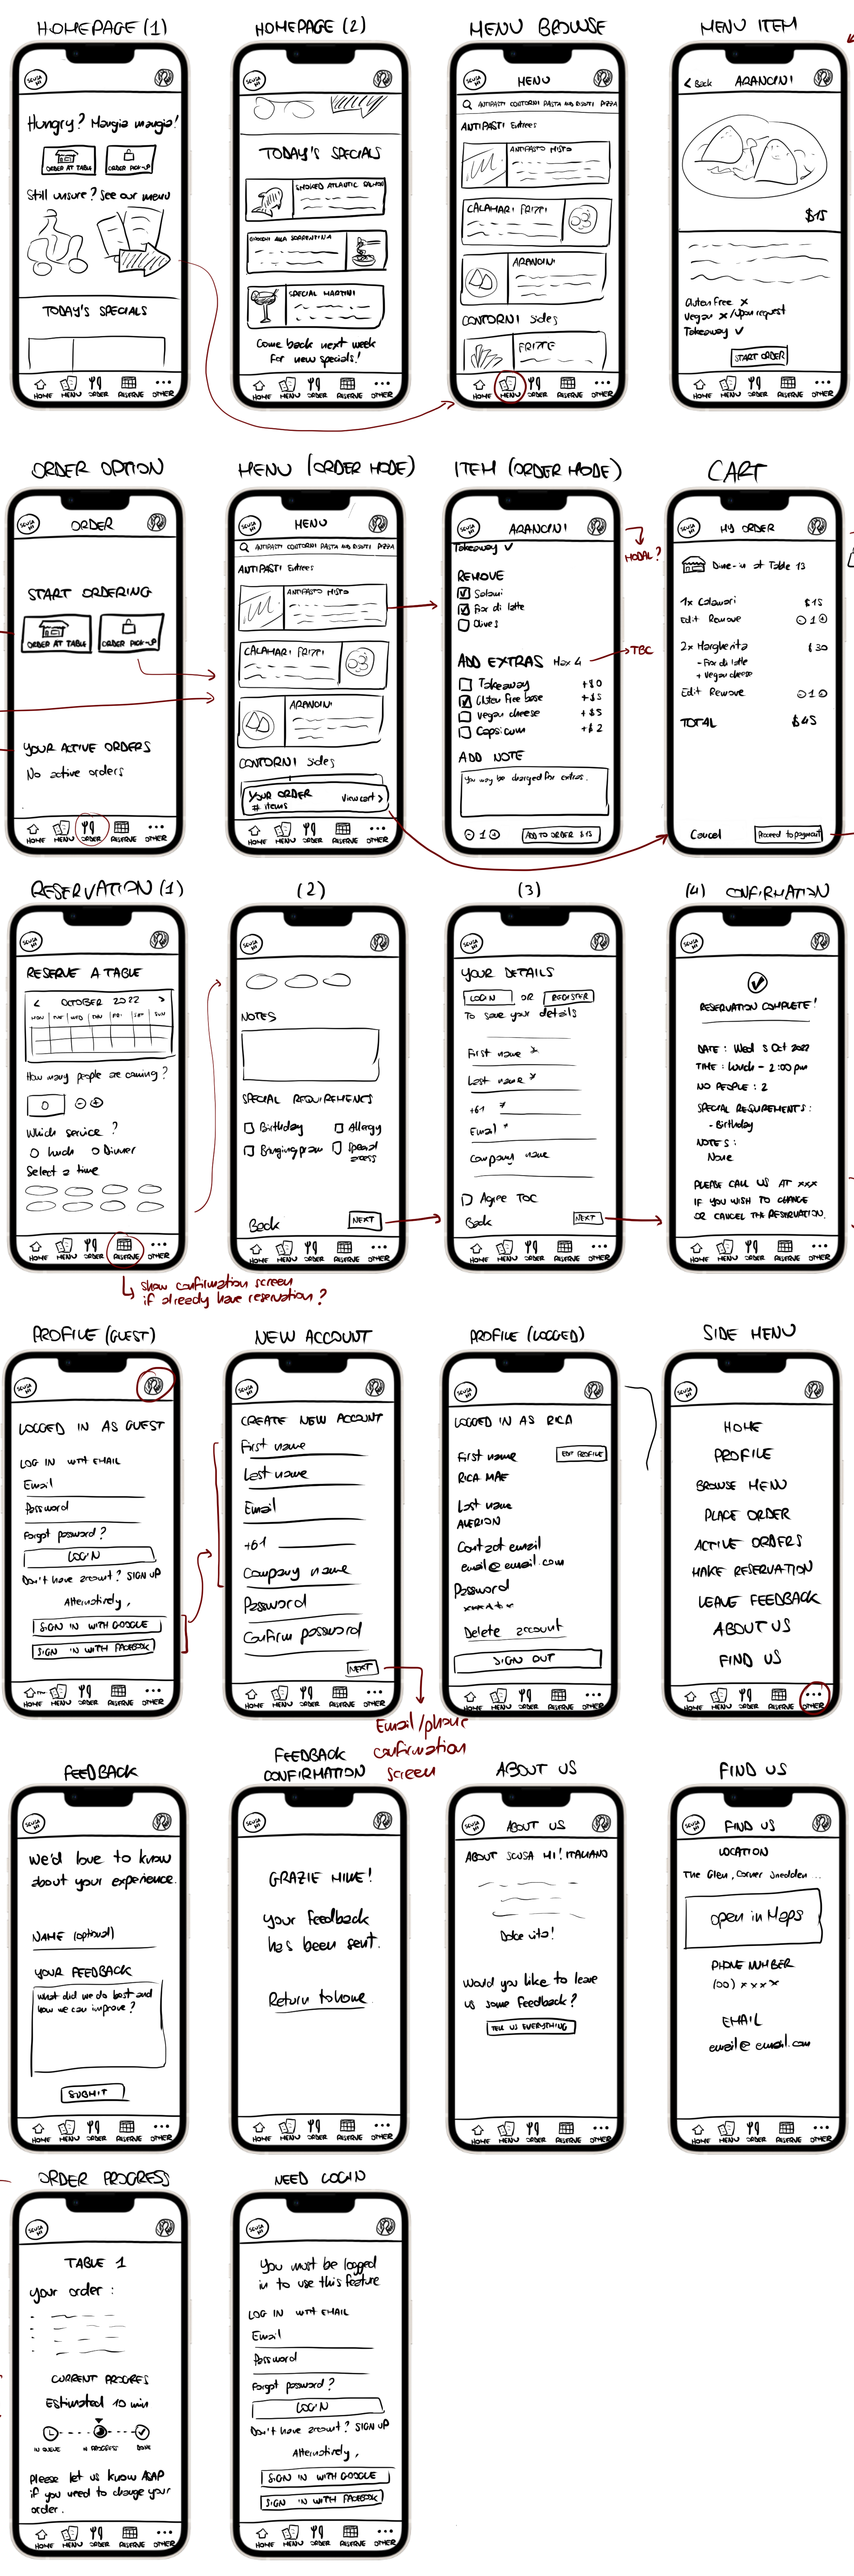 HOMEPAGE (1)
SCUSA MI
Hungry? Mangia mangia!
ORDER AT TABLE
ORDER PICK-UP
Still unsure? See our menu
TODAY'S SPECIALS
HOME MENU ORDER RESERVE OTHER
HOMEPAGE (2)
TODAY'S SPECIALS
SMOKED ATLANTIC SALMON
GNOCCHI ALLA SORRENTINA
SPECIAL MARTINI
Come back next week
for new specials!
HOME MENU ORDER RESERVE OTHER
MENU BROWSE
SCUSA MI
MENU
ANTIPASTI CONTORNI PASTA AND RISOTTI PIZZA
ANTIPASTI Entrees
ANTIPASTO MISTO
CALAMARI FRITTI
ARANCINI
CONTORNI Sides
FRITTE
HOME MENU ORDER RESERVE OTHER
MENU ITEM
< Back
ARANCINI
$15
Gluten Free X
Vegan X/Upon request
Takeaway ✓
START ORDER
HOME MENU ORDER RESERVE OTHER
ORDER OPTION
SCUSA MI
ORDER
START ORDERING
ORDER AT TABLE
ORDER PICK-UP
YOUR ACTIVE ORDERS
No active orders
HOME MENU ORDER RESERVE OTHER
MENU (ORDER MODE)
SCUSA MI
MENU
ANTIPASTI CONTORNI PASTA AND RISOTTI PIZZA
ANTIPASTI Entrees
ANTIPASTO MISTO
CALAMARI FRITTI
ARANCINI
CONTORNI Sides
YOUR ORDER
# items
View cart >
HOME MENU ORDER RESERVE OTHER
ITEM (ORDER MODE)
SCUSA MI
ARANCINI
MODAL?
Takeaway ✓
REMOVE
Salami
Fior di latte
Olives
ADD EXTRAS Max 4
TBC
Takeaway +$0
Gluten Free base +$5
Vegan cheese +$5
Capsicum +$2
ADD NOTE
You may be charged for extras.
1
ADD TO ORDER $15
CART
SCUSA MI
MY ORDER
Dine-in at Table 13
1x Calamari $15
Edit Remove 1
2x Margherita $30
- Fior di latte
+ Vegan cheese
Edit Remove 1
TOTAL $45
Cancel
Proceed to payment
RESERVATION (1)
SCUSA MI
RESERVE A TABLE
< OCTOBER 2022 >
MON TUE WED THU FRI SAT SUN
How many people are coming?
0
Which service?
Lunch Dinner
Select a time
HOME MENU ORDER RESERVE OTHER
show confirmation screen
if already have reservation?
(2)
SCUSA MI
NOTES
SPECIAL REQUIREMENTS
Birthday Allergy
Bringing pram Special access
Back
NEXT
HOME MENU ORDER RESERVE OTHER
(3)
SCUSA MI
YOUR DETAILS
LOG IN OR REGISTER
To save your details
First name *
Last name *
+61 *
Email *
Company name
Agree TOC
Back
NEXT
HOME MENU ORDER RESERVE OTHER
(4) CONFIRMATION
SCUSA MI
RESERVATION COMPLETE!
DATE: Wed 5 Oct 2022
TIME: Lunch - 2:00 pm
NO PEOPLE: 2
SPECIAL REQUIREMENTS:
- Birthday
NOTES:
None
PLEASE CALL US AT XXX
IF YOU WISH TO CHANGE
OR CANCEL THE RESERVATION.
HOME MENU ORDER RESERVE OTHER
PROFILE (GUEST)
SCUSA MI
LOGGED IN AS GUEST
LOG IN WITH EMAIL
Email
Password
Forgot password?
LOGIN
Don't have account? SIGN UP
Alternatively,
SIGN IN WITH GOOGLE
SIGN IN WITH FACEBOOK
HOME MENU ORDER RESERVE OTHER
NEW ACCOUNT
SCUSA MI
CREATE NEW ACCOUNT
First name
Last name
Email
+61
Company name
Password
Confirm password
NEXT
HOME MENU ORDER RESERVE OTHER
Email/phone
confirmation
screen
PROFILE (LOGGED)
SCUSA MI
LOGGED IN AS RICA
First name
EDIT PROFILE
RICA MAE
Last name
Contact email
email@email.com
Password
Delete account
SIGN OUT
HOME MENU ORDER RESERVE OTHER
SIDE MENU
SCUSA MI
HOME
PROFILE
BROWSE MENU
PLACE ORDER
ACTIVE ORDERS
MAKE RESERVATION
LEAVE FEEDBACK
ABOUT US
FIND US
HOME MENU ORDER RESERVE OTHER
FEEDBACK
SCUSA MI
We'd love to know
about your experience.
NAME (optional)
YOUR FEEDBACK
What did we do best and
how we can improve?
SUBMIT
HOME MENU ORDER RESERVE OTHER
FEEDBACK
CONFIRMATION
SCUSA MI
GRAZIE MILLE!
Your feedback
has been sent.
Return to home
HOME MENU ORDER RESERVE OTHER
ABOUT US
SCUSA MI
ABOUT US
ABOUT SCUSA MI! ITALIANO
Dolce vita!
Would you like to leave
us some feedback?
TELL US EVERYTHING
HOME MENU ORDER RESERVE OTHER
FIND US
SCUSA MI
FIND US
LOCATION
The Glen, Corner Snedden ...
Open in Maps
PHONE NUMBER
(00) xxxx
EMAIL
email@email.com
HOME MENU ORDER RESERVE OTHER
ORDER PROGRESS
SCUSA MI
TABLE 1
Your order:
CURRENT PROGRES
Estimated 10 min
IN QUEUE IN PROGRESS DONE
Please let us know ASAP
if you need to change your
order.
HOME MENU ORDER RESERVE OTHER
NEED LOGIN
SCUSA MI
You must be logged
in to use this feature
LOG IN WITH EMAIL
Email
Password
Forgot password?
LOGIN
Don't have account? SIGN UP
Alternatively,
SIGN IN WITH GOOGLE
SIGN IN WITH FACEBOOK
HOME MENU ORDER RESERVE OTHER